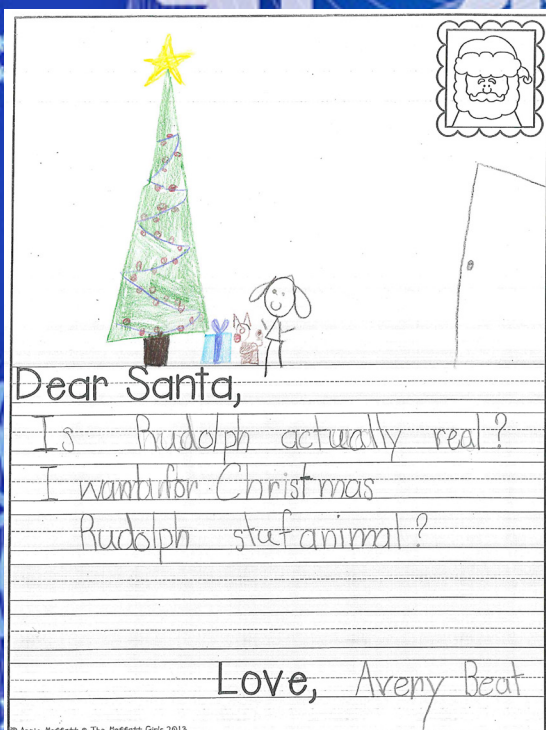 Dear Santa,
Is Rudolph actually real?
I want for Christmas
Rudolph stuf animal?
Love, Avery Beat
The Moffatt Girls 2013